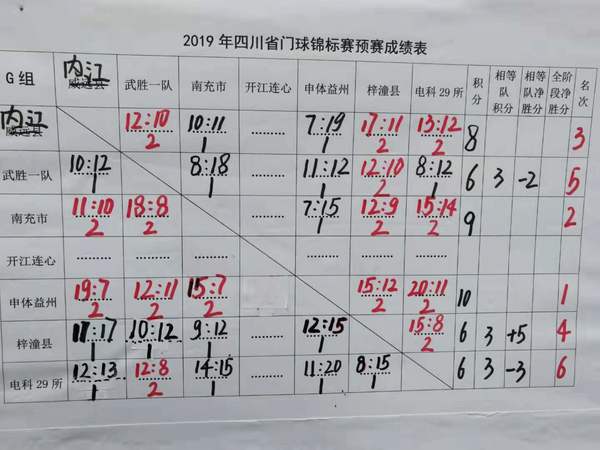 2019年四川省门球锦标赛预赛成绩表
G组 内江 威远县 武胜一队 南充市 开江连心 申体益州 梓潼县 电科29所 积分 相等队积分 相等队净胜分 全阶段净胜分 名次
内江 威远县 12:10 2 10:11 1 ……… 7:19 1 17:11 2 13:12 2 8 3
武胜一队 10:12 1 8:18 1 ……… 11:12 1 12:10 2 8:12 1 6 3 -2 5
南充市 11:10 2 18:8 2 ……… 7:15 1 12:9 2 15:14 2 9 2
开江连心 ……… ……… ……… ……… ……… ………
申体益州 19:7 2 12:11 2 15:7 2 ……… 15:12 2 20:11 2 10 1
梓潼县 11:17 1 10:12 1 9:12 1 ……… 12:15 1 15:8 2 6 3 +5 4
电科29所 12:13 1 12:8 2 14:15 1 ……… 11:20 1 8:15 1 6 3 -3 6